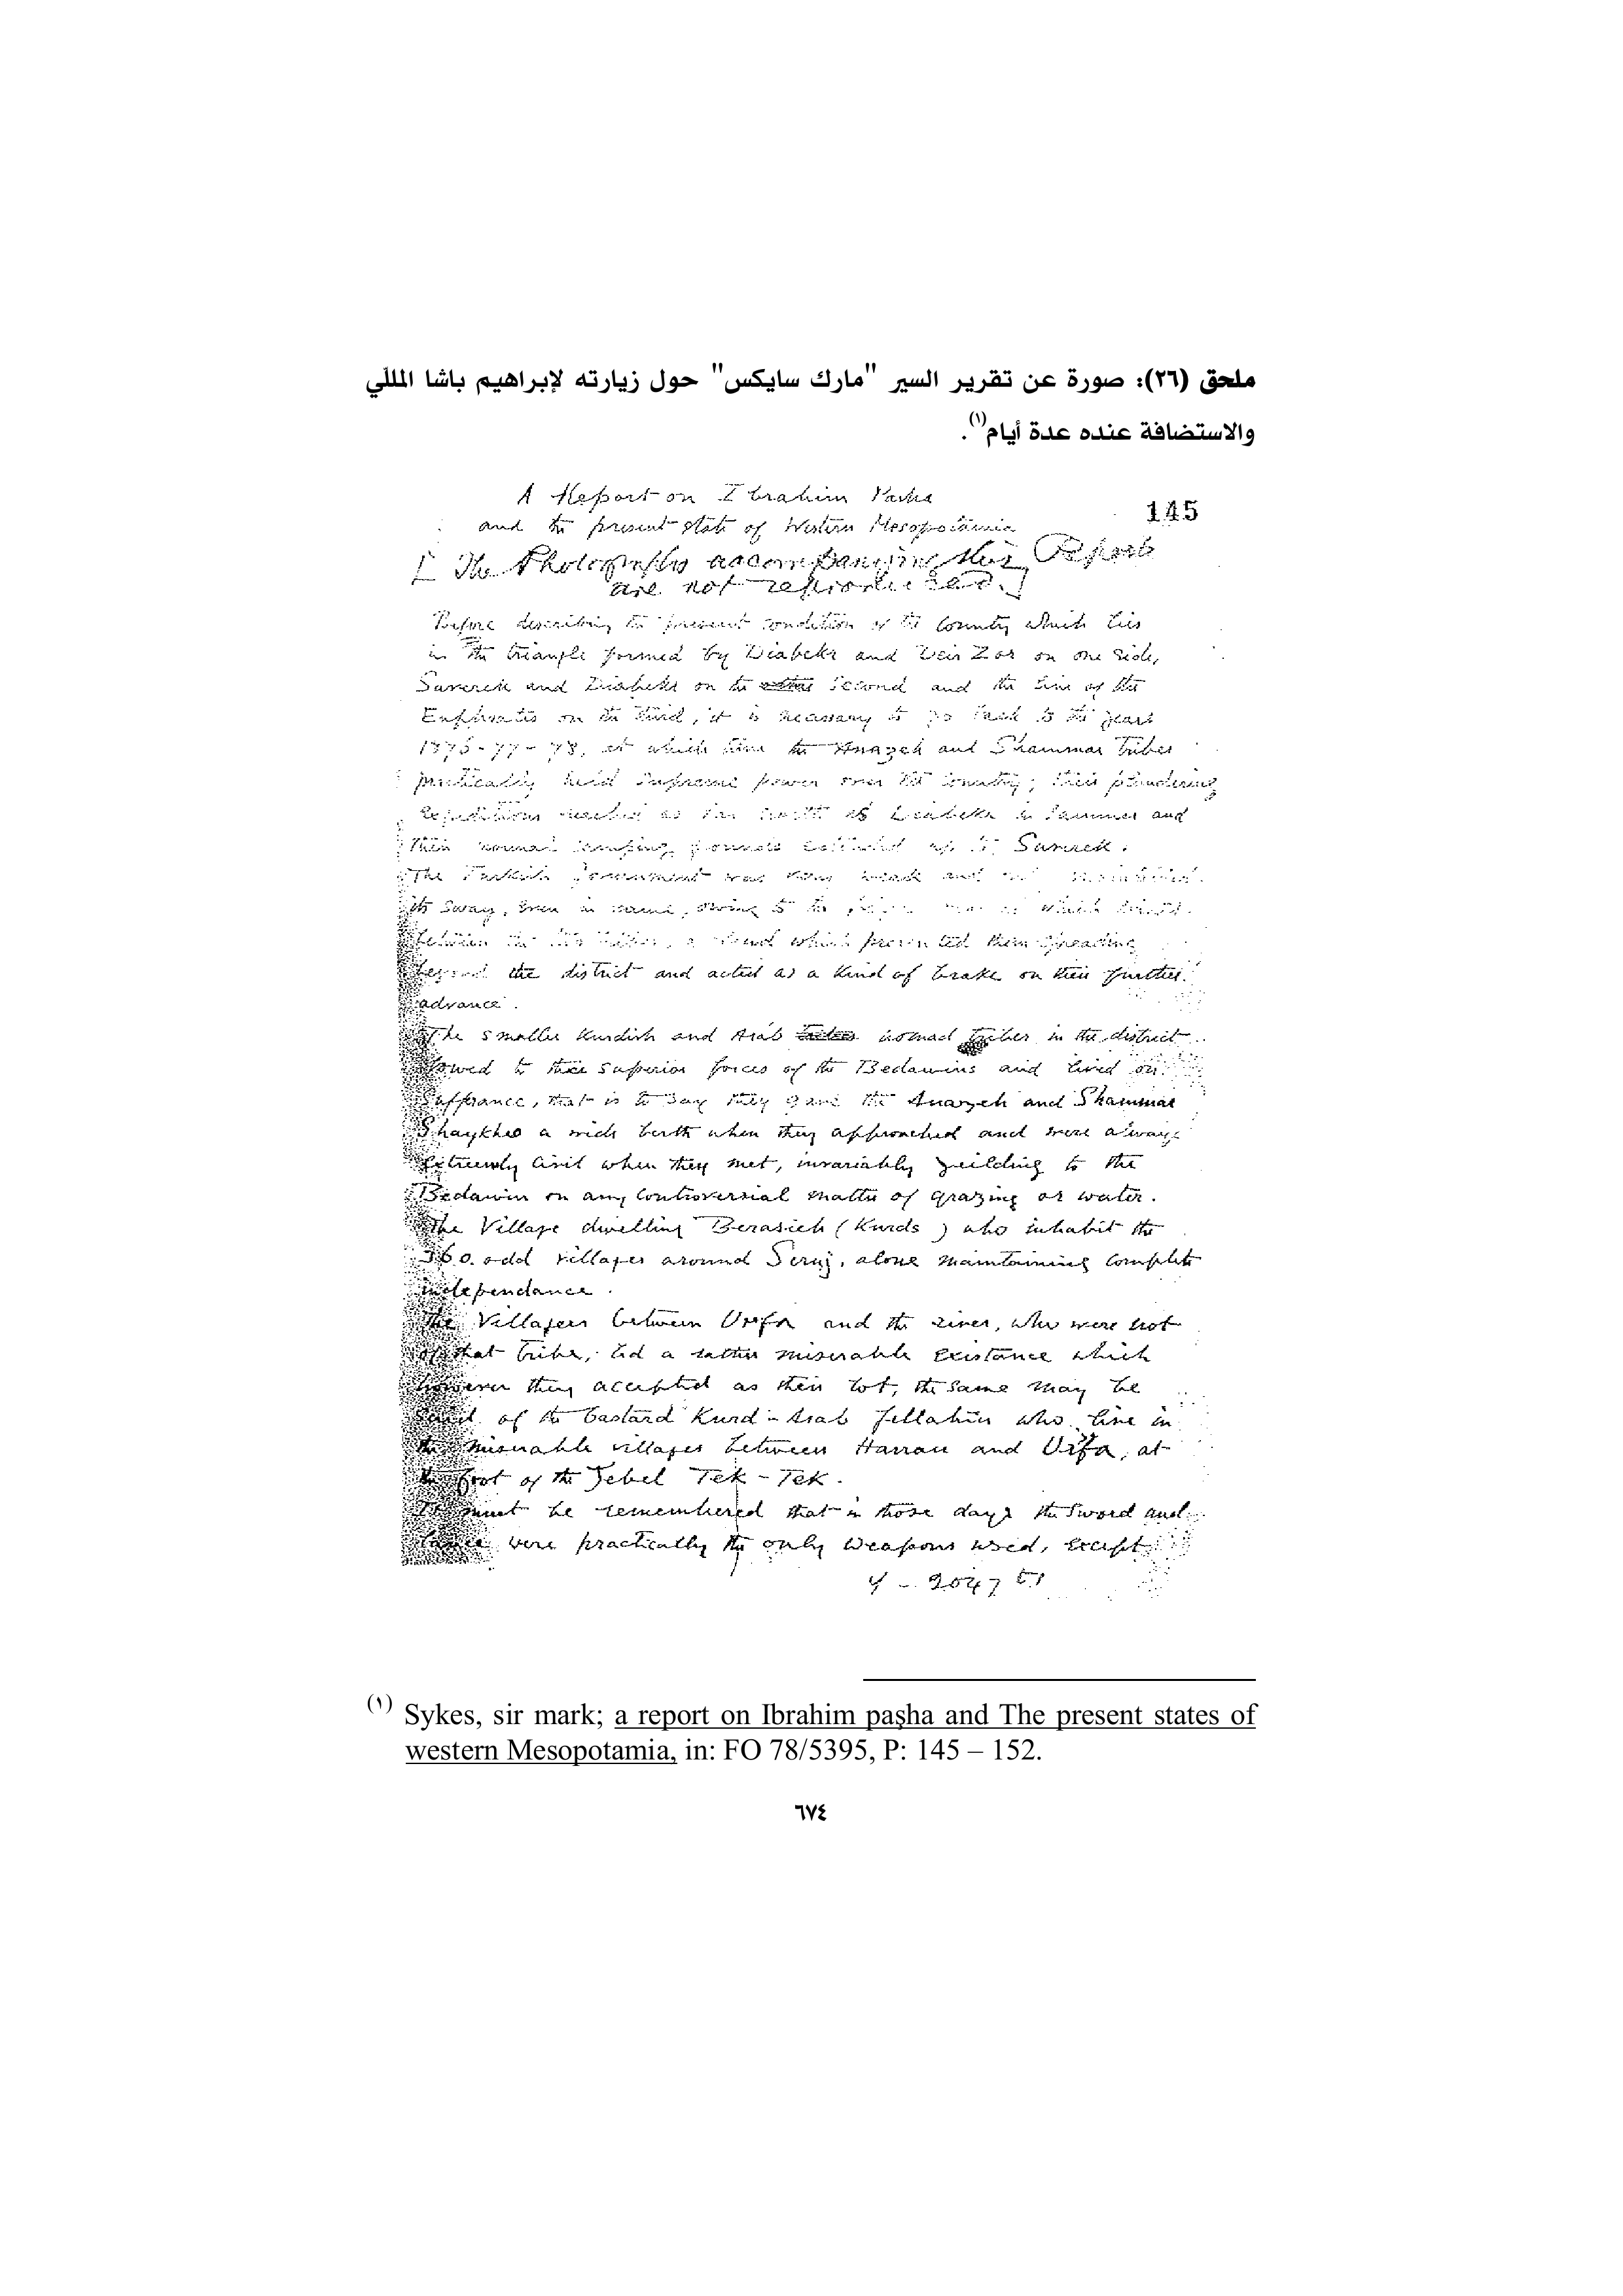 ملحق (٢٦): صورة عن تقرير السير "مارك سايكس" حول زيارته لإبراهيم باشا المللّي
والاستضافة عنده عدة أيام(١).
A Report on Ibrahim Pasha
145
and the present state of Western Mesopotamia
[ The Photographs accompanying this Report
are not reproduced. ]
Before describing the present condition of the country which lies
in the triangle formed by Diabekr and Deir Zor on one side,
Severek and Diabekr on the second and the line of the
Euphrates on the third, it is necessary to go back to the years
1876-77-78, at which time the Anazeh and Shammar tribes
practically held supreme power over the country; their plundering
expeditions reached as far north as Diabekr in Summer and
their normal camping grounds extended up to Severek.
The Turkish Government was very weak and
its sway, even in name, owing to the which existed
between the two tribes, a feud which prevented them spreading
beyond the district and acted as a kind of brake on their further
advance.
The smaller Kurdish and Arab nomad tribes in the district
bowed to the superior forces of the Bedawins and lived on
Suffrance, that is to say they gave the Anazeh and Shammar
Shaykhs a wide berth when they approached and were always
extremely civil when they met, invariably yeilding to the
Bedawin on any controversial matter of grazing or water.
The Village dwelling Berasieh (Kurds) who inhabit the
360. odd villages around Seruj, alone maintaining complete
independance.
The Villagers between Urfa and the river, who were not
of that tribe, led a rather miserable existance which
however they accepted as their lot, the same may be
said of the bastard Kurd-Arab fellahin who live in
the miserable villages between Harran and Urfa, at
the foot of the Jebel Tek-Tek.
It must be remembered that in those days the Sword and
lance were practically the only weapons used, except
(١) Sykes, sir mark; a report on Ibrahim paşha and The present states of
western Mesopotamia, in: FO 78/5395, P: 145 – 152.
٦٧٤